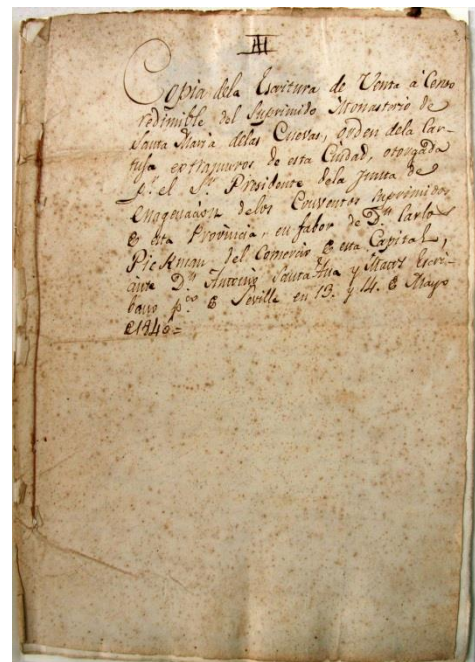 Copia dela Escritura de Venta a Censo
redimible del Suprimido Monasterio de
Santa Maria delas Cuevas, orden dela Car-
tuja extramuros de esta Ciudad, otorgada
pr. el Sr. Presidente dela Junta de
enagenacion delos Conventos suprimidos
de esta Provincia, en fabor de Dn. Carlos
Pickman del Comercio de esta Capital,
ante Dn. Antonio Santa Ana y Escri-
bano pco. de Sevilla en 13. y 14. de Mayo
de 1840=